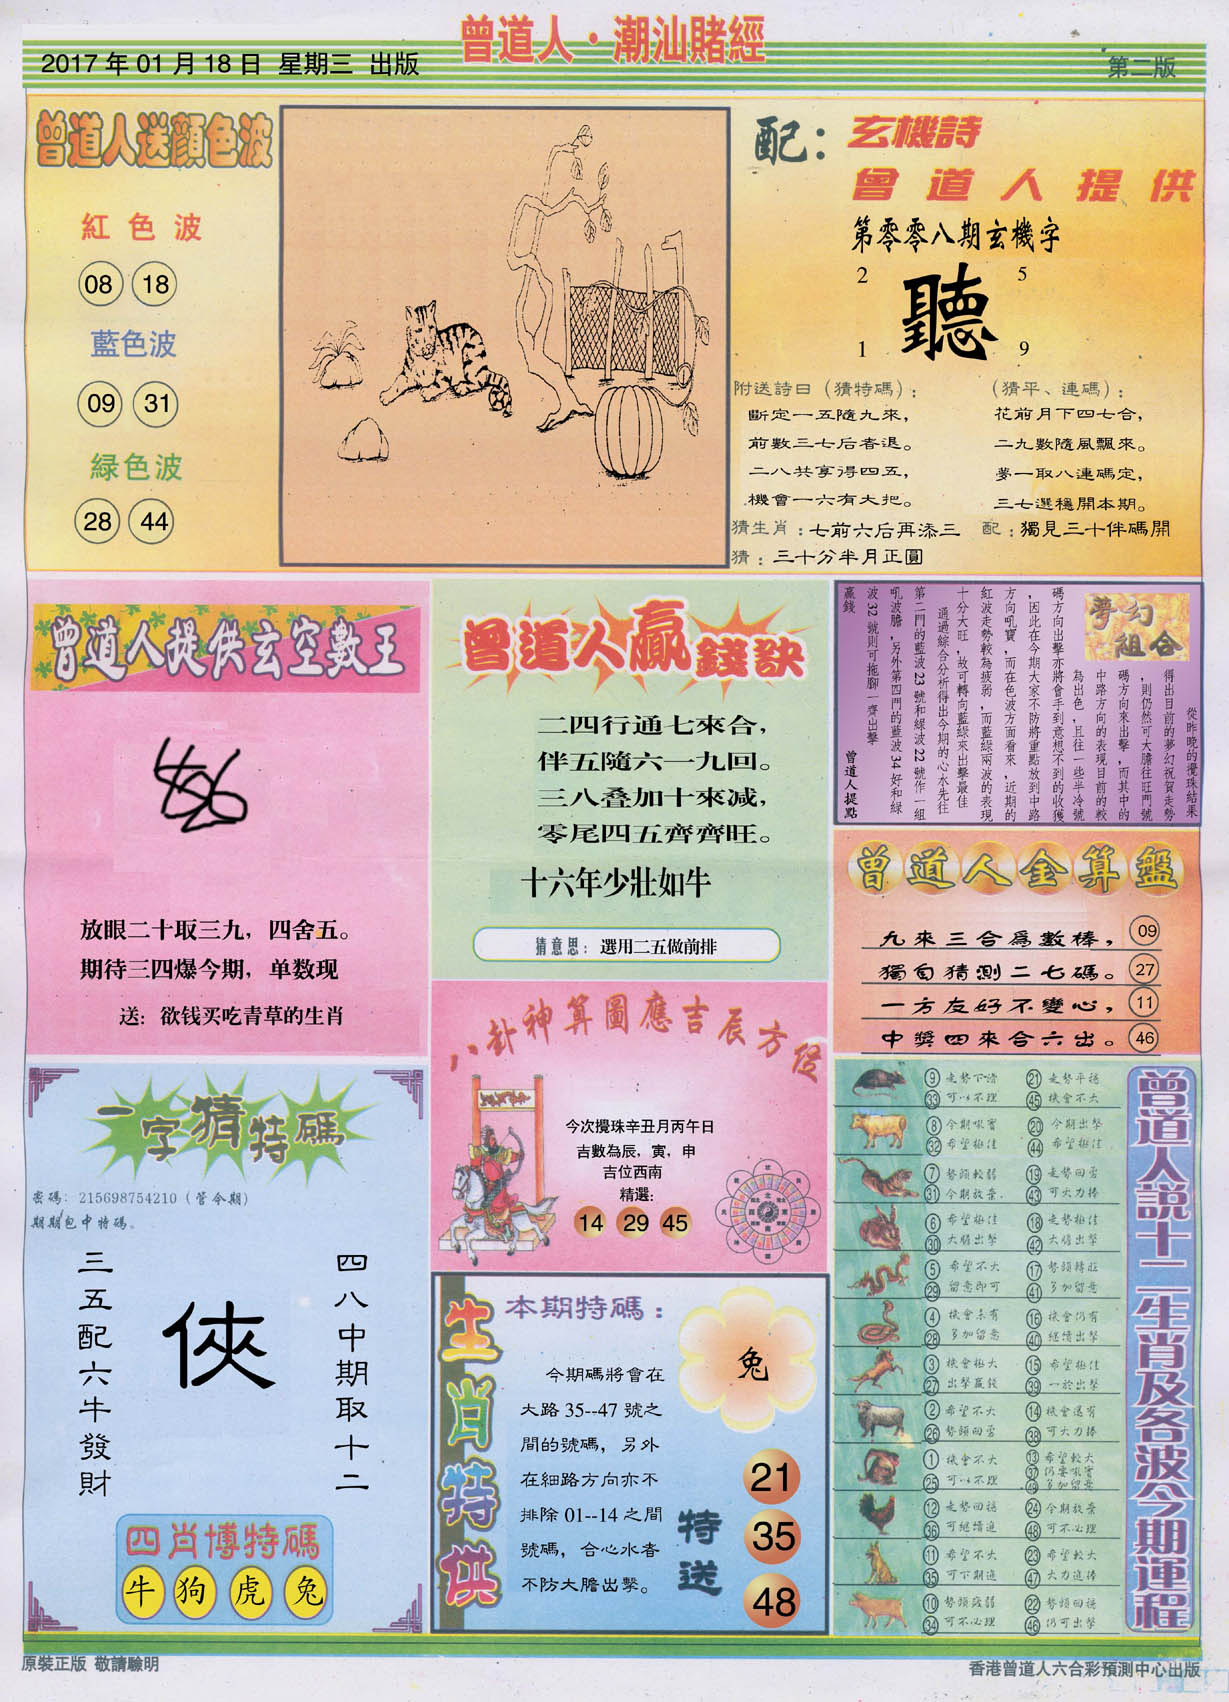 曾道人·潮汕賭經
2017年01月18日 星期三 出版
第二版
曾道人送顏色波
紅色波
08 18
藍色波
09 31
緑色波
28 44
配：玄機詩
曾道人提供
第零零八期玄機字
2 5
聽
1 9
附送詩曰（猜特碼）：
斷定一五隨九來，
前數三七后者退。
二八共享得四五，
機會一六有大把。
（猜平、連碼）：
花前月下四七合，
二九數隨風飄來。
夢一取八連碼定，
三七選穩開本期。
猜生肖：七前六后再添三
配：獨見三十伴碼開
猜：三十分半月正圓
曾道人提供玄空數王
放眼二十取三九，四舍五。
期待三四爆今期，单数现
送：欲钱买吃青草的生肖
曾道人贏錢訣
二四行通七來合，
伴五隨六一九回。
三八叠加十來減，
零尾四五齊齊旺。
十六年少壯如牛
猜意思：選用二五做前排
夢幻
組合
從昨晚的攪珠結果
得出目前的夢幻祝賀走勢
，則仍然可大膽往旺門號
碼方向來出擊，而其中的
中路方向的表現目前的較
為出色，且往一些半冷號
碼方向出擊亦將會手到意想不到的收獲
，因此在今期大家不防將重點放到中路
方向吼寶，而在色波方面看來，近期的
紅波走勢較為疲弱，而藍綠兩波的表現
十分大旺，故可轉向藍綠來出擊最佳
通過綜合分析得出今期的心水先往
第二門的藍波23號和緑波22號作一組
吼波膽，另外第四門的藍波34好和緑
波32號則可拖腳一齊出擊
贏錢
曾道人提點
曾道人金算盤
九來三合爲數棒， 09
獨自猜測二七碼。 27
一方友好不變心， 11
中獎四來合六出。 46
八卦神算圖應吉辰方位
今次攪珠辛丑月丙午日
吉數為辰，寅，申
吉位西南
精選：
14 29 45
一字猜特碼
密碼：215698754210（管今期）
期期包中特碼。
四八中期取十二
俠
三五配六牛發財
四肖博特碼
牛 狗 虎 兔
生肖特供
本期特碼：
兔
今期碼將會在
大路35--47號之
間的號碼，另外
在細路方向亦不
排除01--14之間
號碼，合心水者
不防大膽出擊。
特送
21
35
48
曾道人説十二生肖及各波今期運程
9 走勢下滑 21 走勢平穩
33 可以不理 45 機會不大
8 今期吼寶 20 今期出擊
32 希望極佳 44 希望極佳
7 勢頭較弱 19 走勢回勇
31 今期放棄. 43 可大力捧
6 希望極佳 18 走勢極佳
30 大膽出擊 42 大膽出擊
5 希望不大 17 勢頭轉旺
29 留意即可 41 多加留意
4 機會未有 16 機會仍有
28 多加留意 40 繼續出擊
3 機會極大 15 希望極佳
27 出擊贏錢 39 一於出擊
2 希望不大 14 機會還有
26 勢頭回勇 38 可大力捧
1 機會不大 13 希望較大
25 可以不理 37 仍要吼寶
49 多加留意
12 走勢回穩 24 今期放棄
36 可繼續追 48 可不必理
11 希望不大 23 希望較大
35 可下期追 47 大力追捧
10 勢頭疲弱 22 勢頭回穩
34 可不必理 46 仍可出擊
原裝正版 敬請驗明
香港曾道人六合彩預測中心出版